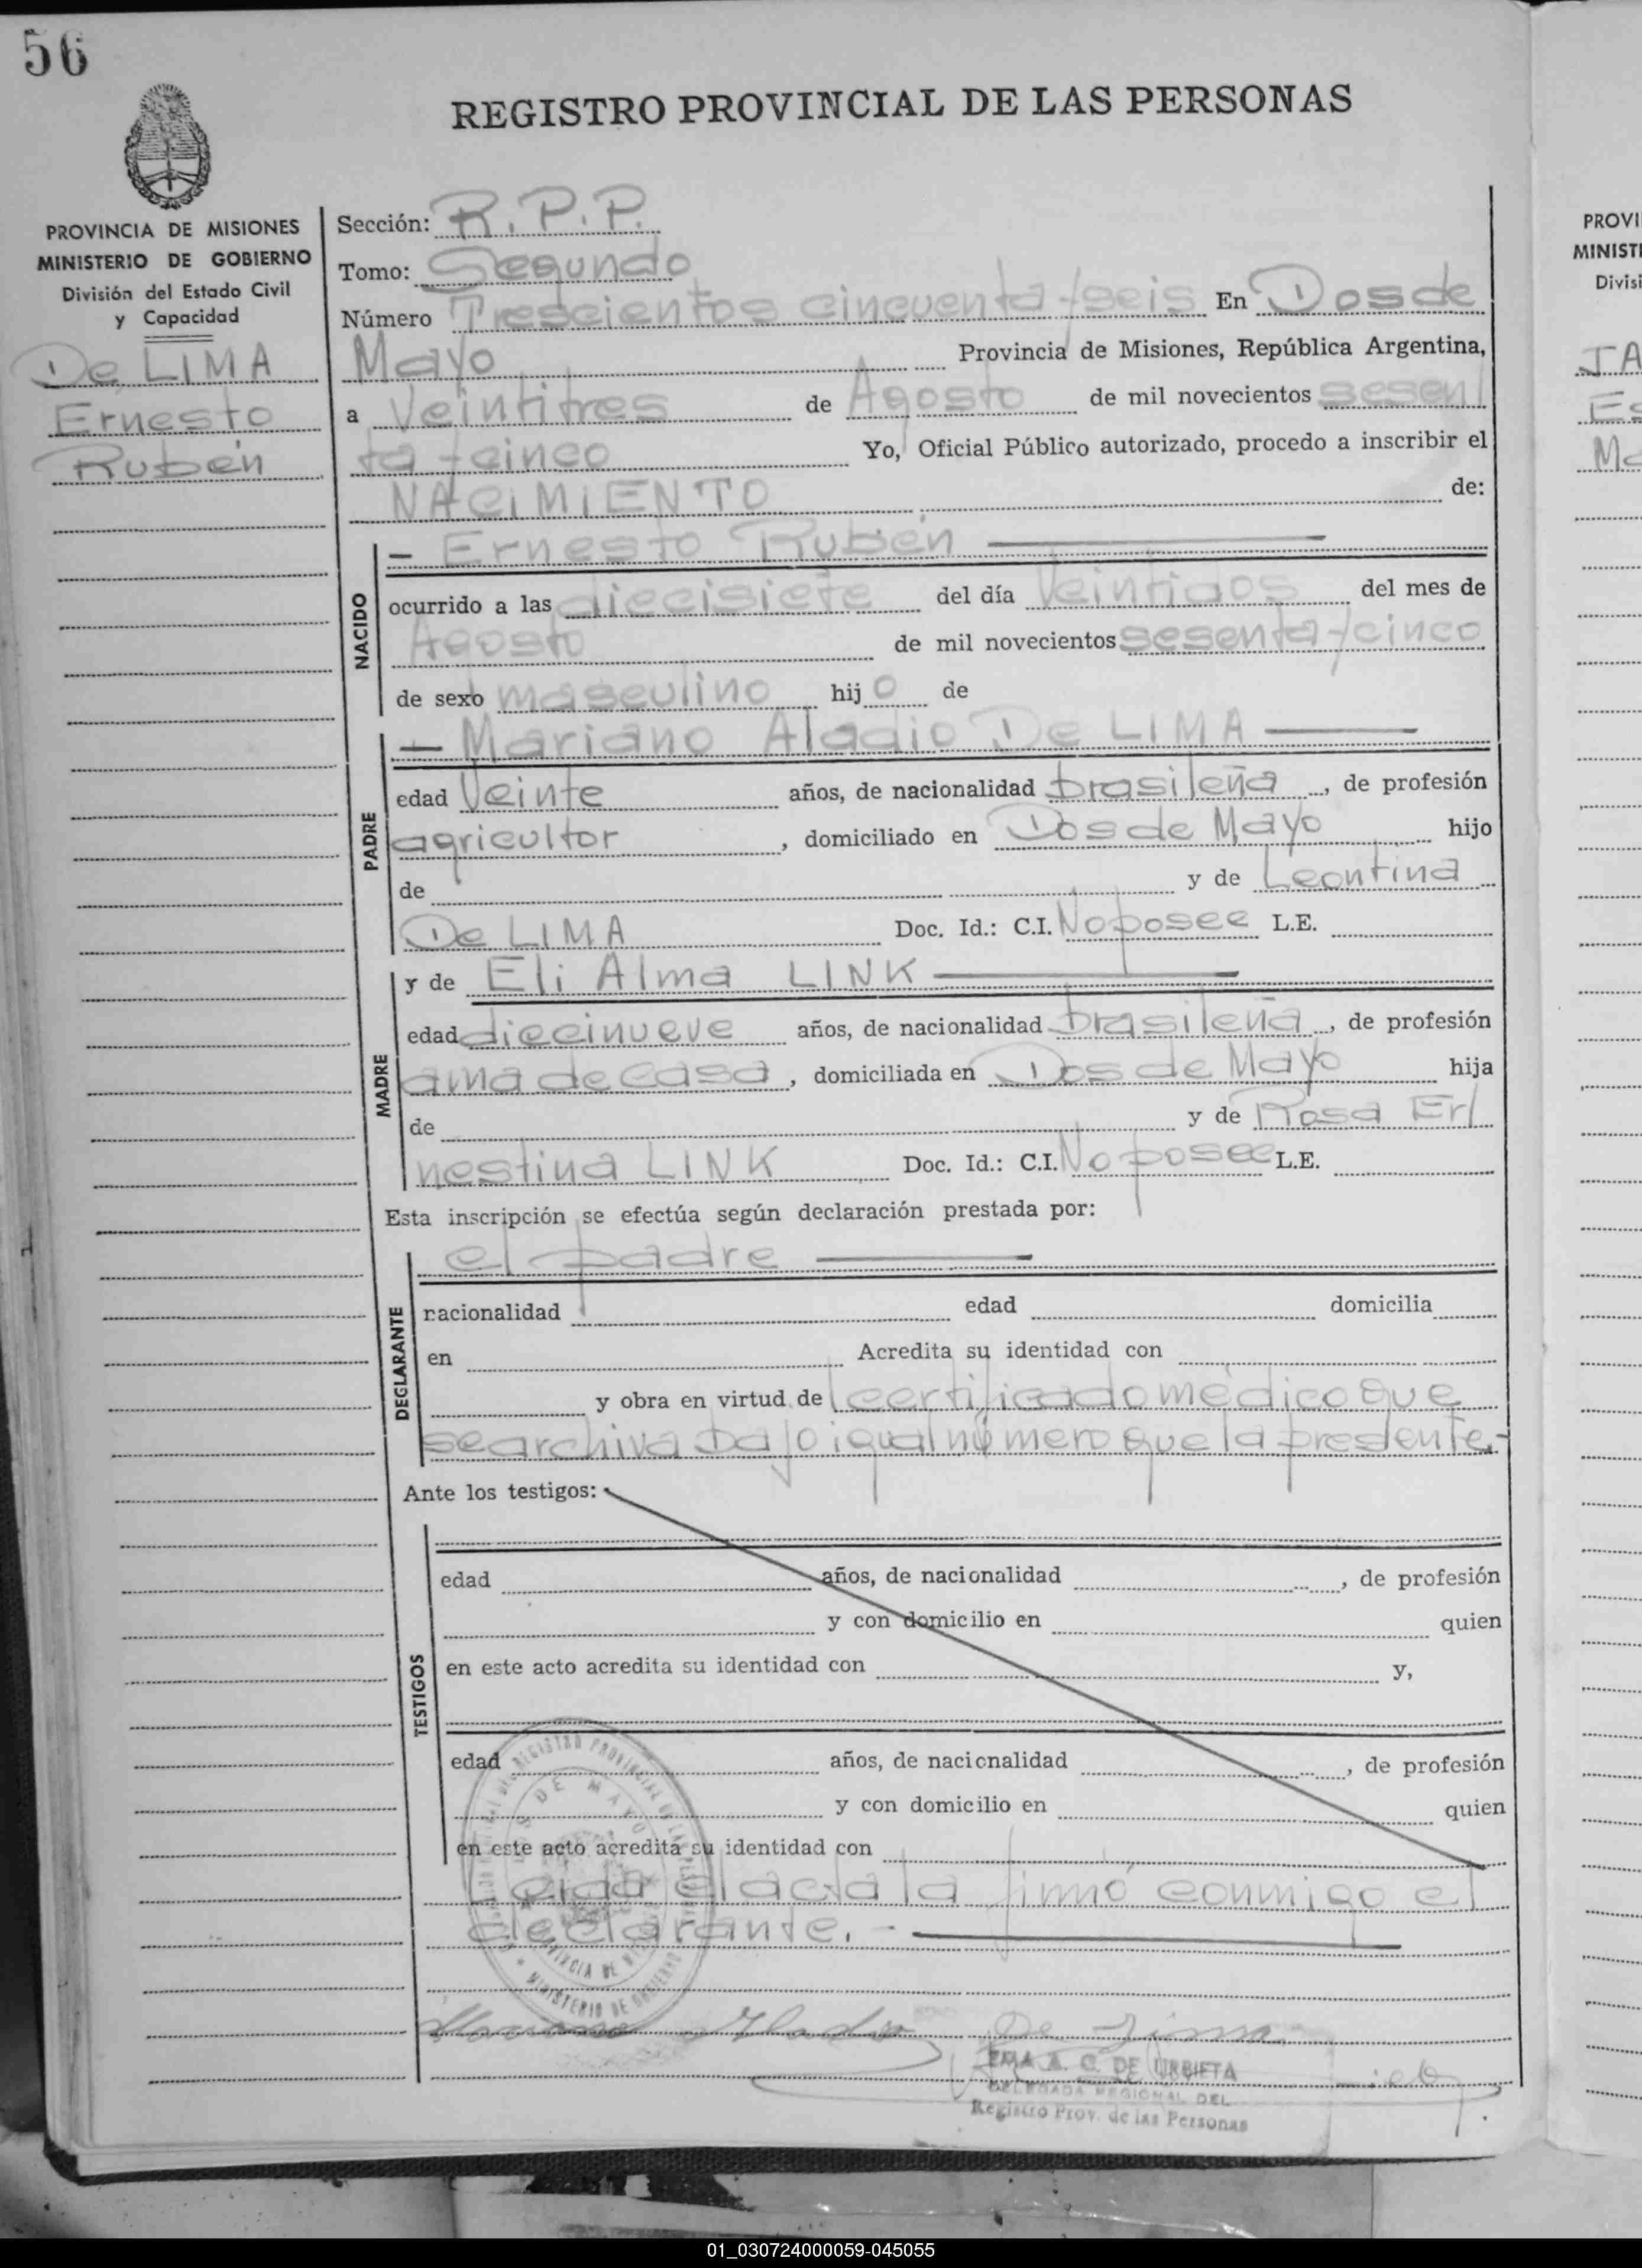 56
REGISTRO PROVINCIAL DE LAS PERSONAS
PROVINCIA DE MISIONES
MINISTERIO DE GOBIERNO
División del Estado Civil
y Capacidad
De LIMA
Ernesto
Rubén
Sección: R.P.P.
Tomo: Segundo
Número Trescientos cincuenta/seis En Dos de
Mayo Provincia de Misiones, República Argentina,
a Veintitres de Agosto de mil novecientos sesen
ta/cinco Yo, Oficial Público autorizado, procedo a inscribir el
NACIMIENTO de:
NACIDO
— Ernesto Rubén —
ocurrido a las diecisiete del día Veintidos del mes de
Agosto de mil novecientos sesenta/cinco
de sexo masculino hijo de
PADRE
— Mariano Aladio De LIMA —
edad Veinte años, de nacionalidad brasileña, de profesión
agricultor, domiciliado en Dos de Mayo hijo
de y de Leontina
De LIMA Doc. Id.: C.I. No posee L.E.
MADRE
y de Eli Alma LINK —
edad diecinueve años, de nacionalidad brasileña, de profesión
ama de casa, domiciliada en Dos de Mayo hija
de y de Rosa Er/
nestina LINK Doc. Id.: C.I. No posee L.E.
Esta inscripción se efectúa según declaración prestada por:
DECLARANTE
el padre —
nacionalidad edad domicilia
en Acredita su identidad con
y obra en virtud de certificado médico que
se archiva bajo igual número que la presente.-
Ante los testigos:
TESTIGOS
edad años, de nacionalidad , de profesión
y con domicilio en quien
en este acto acredita su identidad con y,
edad años, de nacionalidad , de profesión
y con domicilio en quien
en este acto acredita su identidad con
Leida el acta la firmó conmigo el
declarante.- —
REGISTRO PROVINCIAL DE LAS PERSONAS
DOS DE MAYO
PROVINCIA DE MISIONES
MINISTERIO DE GOBIERNO
Mariano Aladio De Lima
EMA A. C. DE URBIETA
DELEGADA REGIONAL DEL
Registro Prov. de las Personas
PROVI
MINISTE
Divisi
JA
Es
Ma
01_030724000059-045055